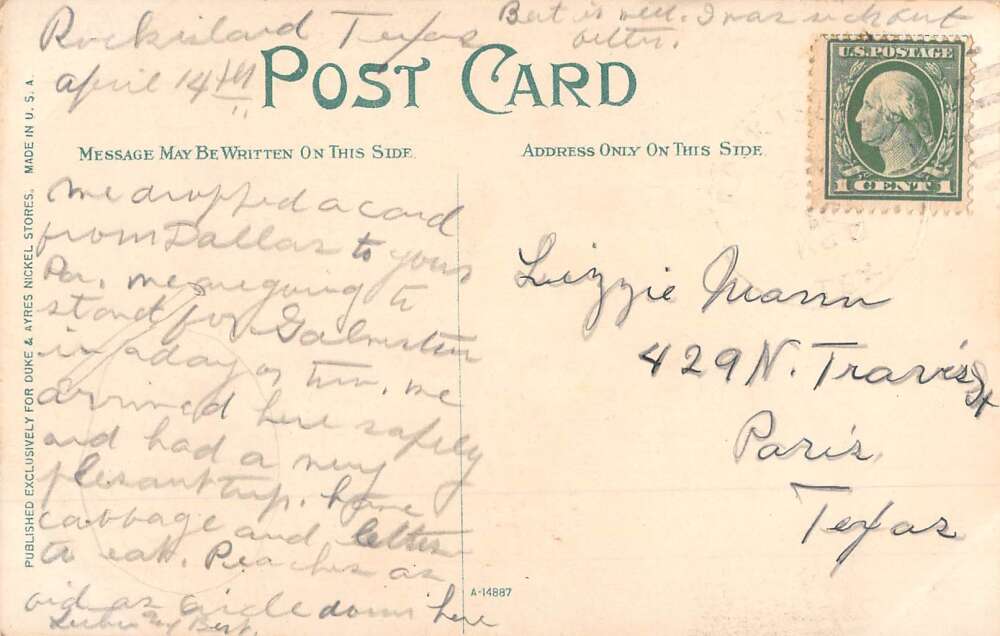 Rockisland Texas
april 14th
Bert is well. I was sick but
better.
POST CARD
U.S. POSTAGE
1 CENT 1
MESSAGE MAY BE WRITTEN ON THIS SIDE.
ADDRESS ONLY ON THIS SIDE.
PUBLISHED EXCLUSIVELY FOR DUKE & AYRES NICKEL STORES. MADE IN U. S. A.
we dropped a card
from Dallas to your
Pa, we are going to
start for Galveston
in a day or two, we
arrived here safely
and had a very
plesant trip. have
cabbage and lettus
to eat. Peaches as
big as circle down here
Bert.
Lizzie Mann
429 N. Travis St
Paris,
Texas
A-14887